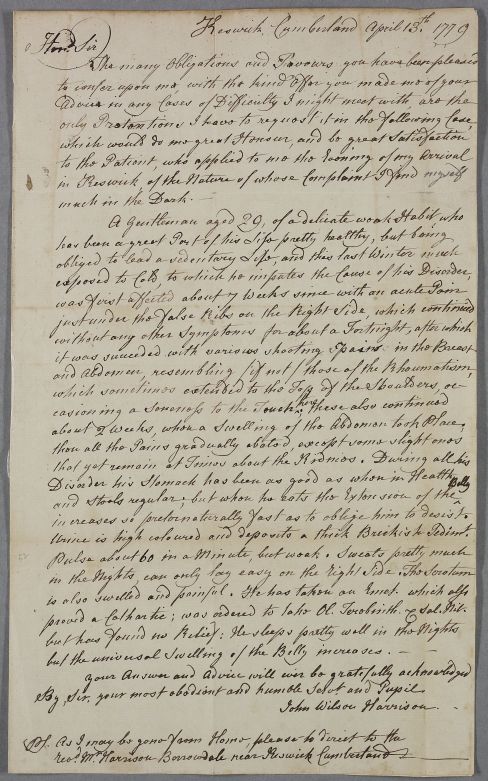 Keswick, Cumberland April 13.th 1779
Hond. Sir
The many Obligations and Favours you have been pleased
to confer upon me, with the kind Offer you made me of your
Advice in any Cases of Difficulty I might meet with, are the
only Pretentions I have to request it in the following Case
which would do me great Honour, and be great Satisfaction
to the Patient, who applied to me the Evening of my Arrival
in Keswick, of the Nature of whose Complaint I find myself
much in the Dark. —
A Gentleman aged 29, of a delicate weak Habit, who
has been a great Part of his Life pretty healthy, but being
obliged to lead a sedentary Life, and this last Winter much
exposed to Cold, to which he imputes the Cause of his Disorder,
was first affected about 7 Weeks since with an acute Pain
just under the False Ribs on the Right Side, which continued
without any other Symptoms for about a Fortnight, after which
it was succeeded with various shooting Pains in the Breast
and Abdomen, resembling (if not) those of the Rheumatism
which sometimes extended to the Top of the Shoulders, oc-
casioning a Soreness to the Touch here, these also continued
about 2 Weeks, when a Swelling of the Abdomen took Place,
then all the Pains gradually abated, except some slight ones
that yet remain at Times about the Kidneys. During all his
Disorder his Stomach has been as good as when in Health
and Stools regular; but when he eats the Extension of the Belly
increases so preternaturally fast as to oblige him to desist.
Urine is high coloured and deposits a thick Brickish Sedimt.
Pulse about 60 in a Minute, but weak. Sweats pretty much
in the Nights, can only lay easy on the right Side. The Scrotum
is also swelled and painful. He has taken an Emet. which also
proved a Cathartic; was ordered to take Ol. Terebinth. & Sal. Nit.
but has found no Relief: He sleeps pretty well in the Nights
but the universal Swelling of the Belly increases. —
Your Answer and Advice will ever be gratefully acknowledged
By, Sir, your most obedient and humble Servt and Pupil
John Wilson Harrison
PS. As I may be gone from Home, please to direct to the
revd. Mr. Harrison Borrowdale near Keswick Cumberland